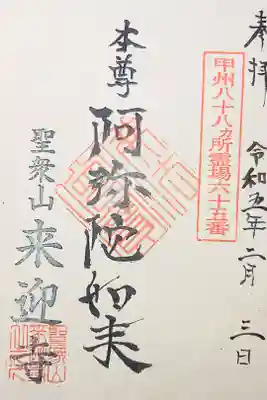 奉拝
甲州八十八カ所霊場六十五番
令和五年二月三日
本尊
阿弥陀如来
聖衆山
来迎寺